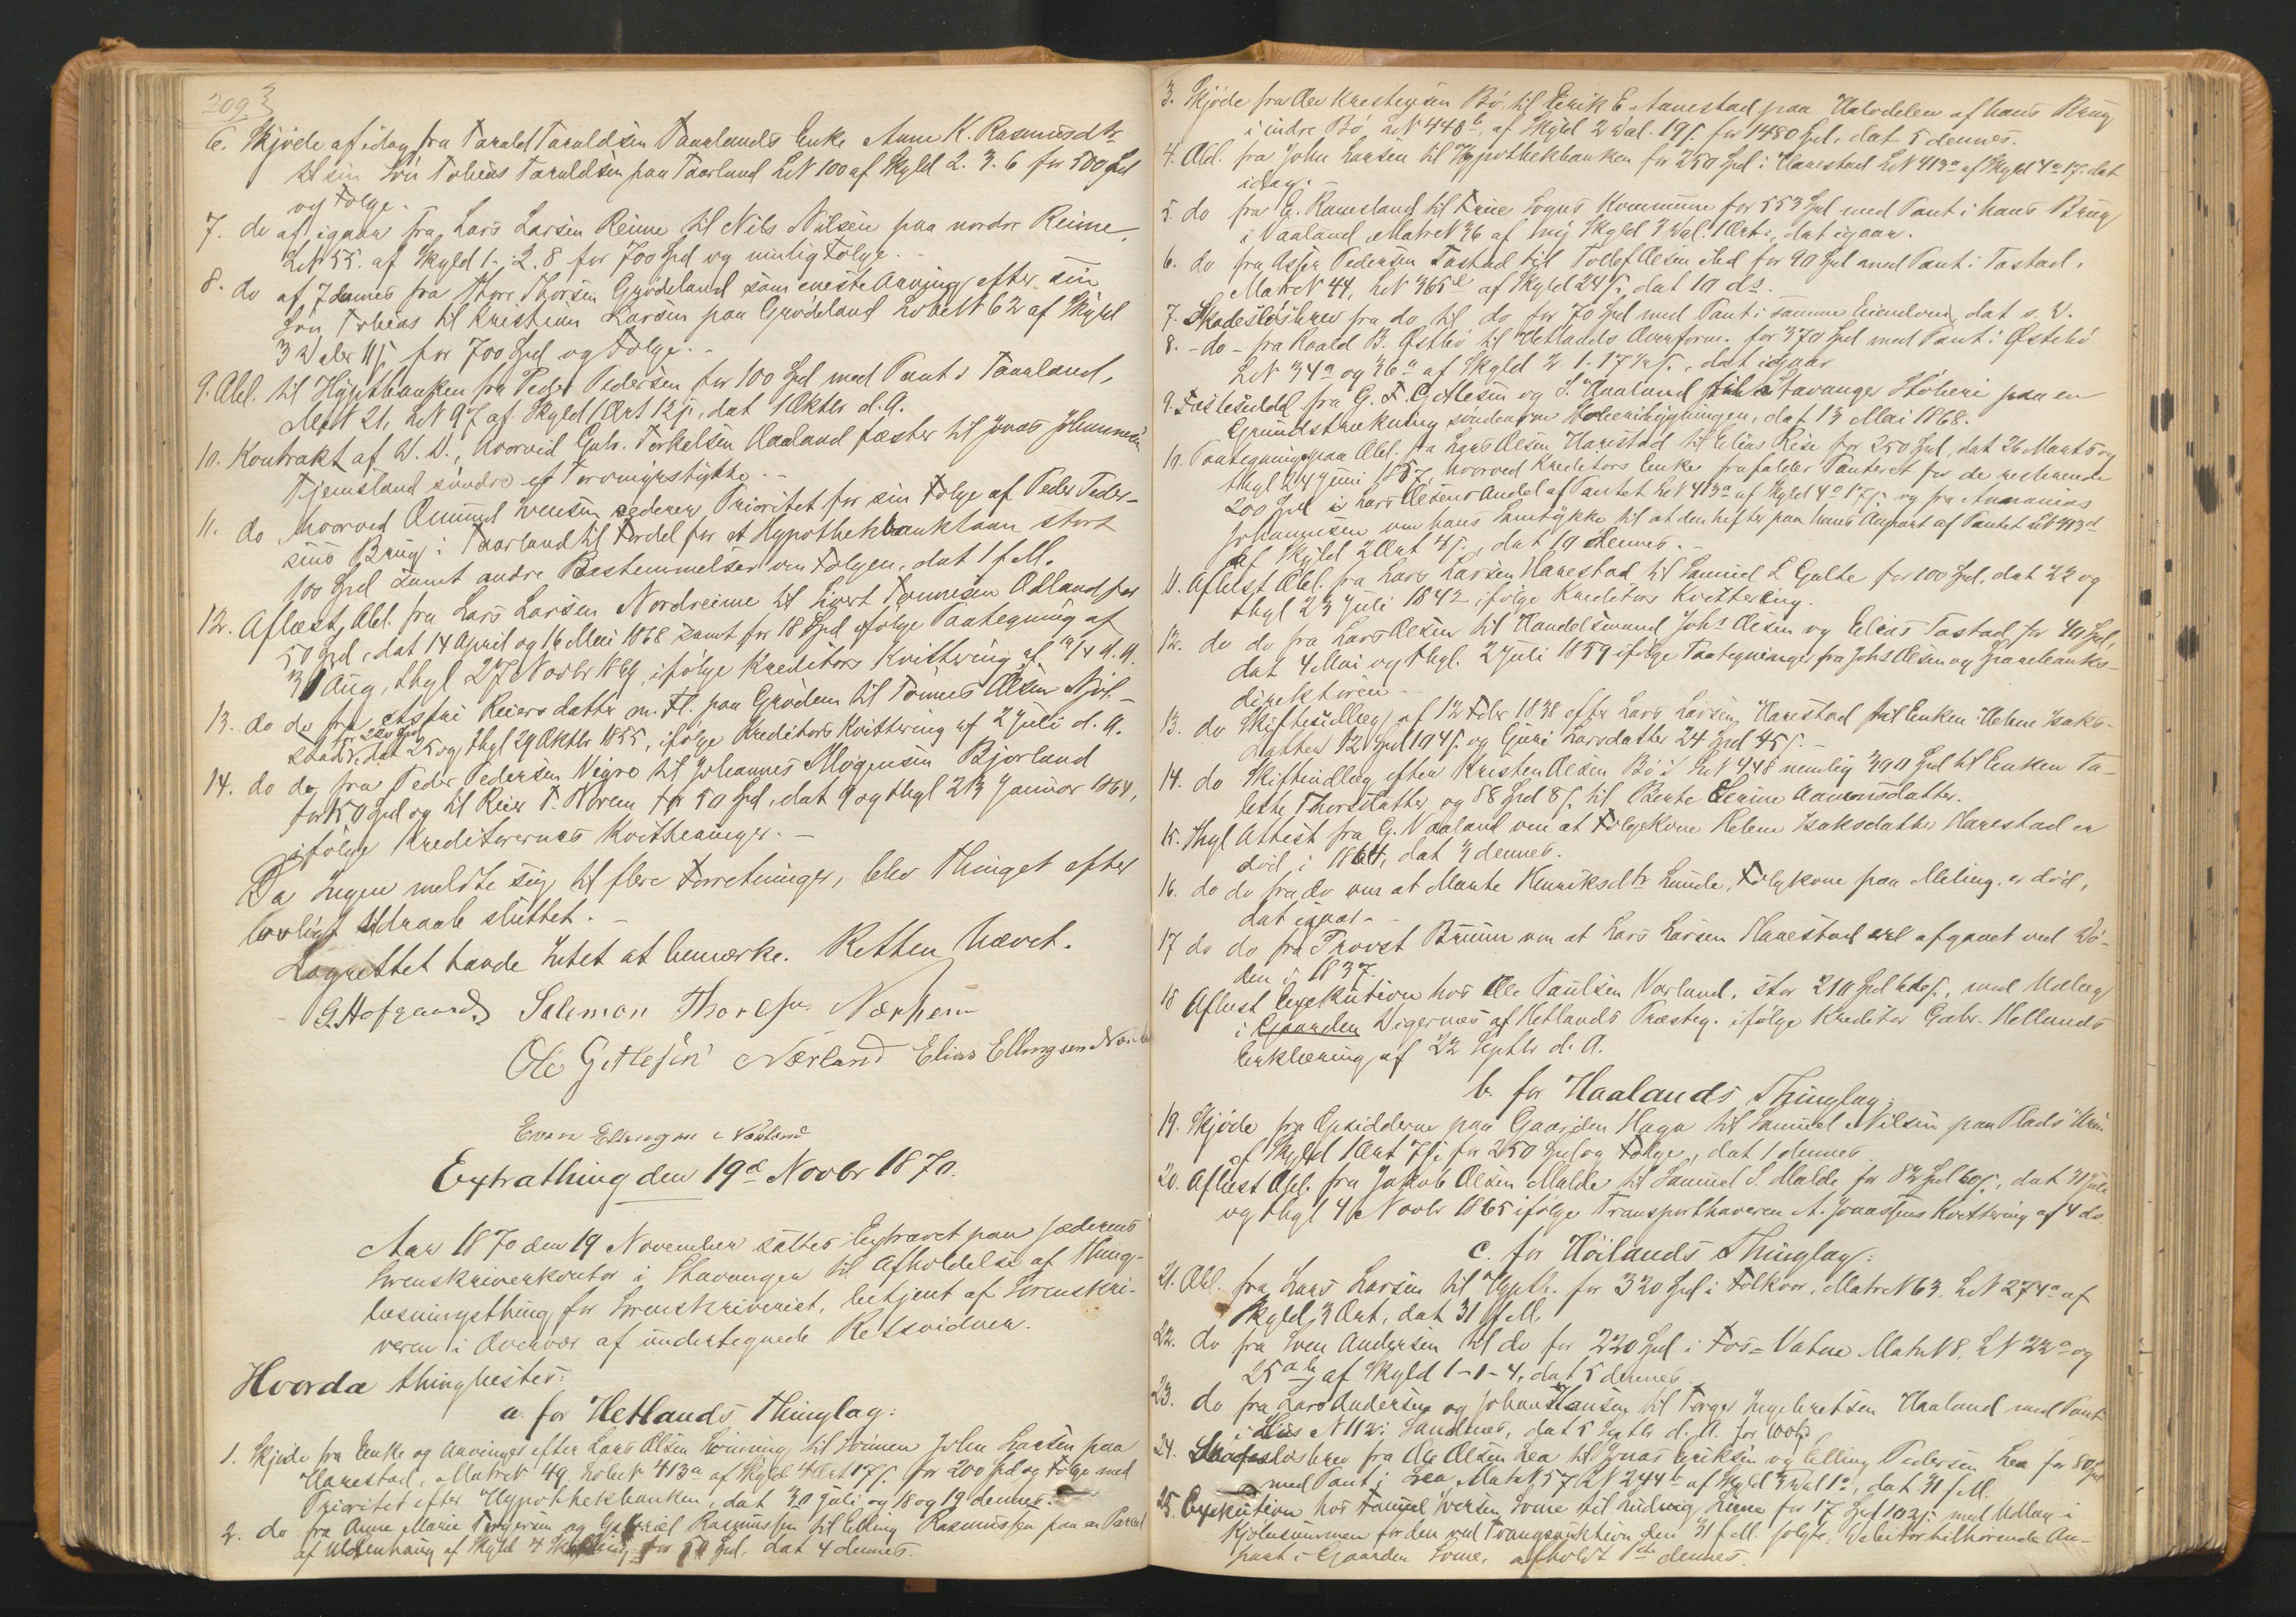 209 3
6. Skjøde af idag fra Tarald Taraldsen Taarlands Enke Anne K. Rasmusdtr
til sin Søn Tobias Taraldsen paa Taarland LN 100 af Skyld 2. 3. 6 for 500 Spd
og Følge.
7. do af igaar fra Lars Larsen Reime til Nils Nilsen paa nordre Reime,
LN 55. af Skyld 1-:2.8 for 700 Spd og mulig Følge.
8. do af 7 dennes fra Thore Thorsen Grødeland som eneste Arving efter sin
Søn Tobias til Kristian Larsen paa Grødeland LøbeN 62 af Skyld
3 Daler 11 s for 700 Spd og Følge.
9. Obl. til Hypthbanken fra Peder Pedersen for 100 Spd med Pant i Taarland,
MN 21, LN 97 af Skyld 1 Ort 12 s, dat 1 Oktbr d. A.
10. Kontrakt af s. D., hvorved Gabr. Torkelsen Aaland fæster til Jonas Johannesen
Tjemsland søndre et Torvmyrstykke.
11. do hvorved Omund Svensen cederer Prioritet for sin Følge af Peder Peder-
sens Brug i Taarland til Fordel for et Hypothekbanklaan stort
100 Spd samt andre Bestemmelser om Følgen, dat 1 f. M.
12. Aflæst Obl. fra Lars Larsen Nordreime til Sivert Tønnesen Odland for
50 Spd, dat 14 April og 16 Mai 1868 samt for 18 Spd ifølge Paategning af
31 Aug, thgl 27 Novbr 1869, ifølge Kreditors Kvittering af d. A.
13. do do fra Astri Reiersdatter m. Fl. paa Grødem til Tønnes Olsen Njol-
stad for 220 Spd, dat 25 og thgl 29 Oktbr 1855, ifølge Kreditors Kvittering af 2 Juli d. A.
14. do do fra Peder Pedersen Vigre til Johannes Mogensen Bjorland
for 150 Spd og til Reier T. Norem for 50 Spd, dat 9 og thgl 23 Januar 1864,
ifølge Kreditorernes Kvitteringer.
Da Ingen meldte sig til flere Forretninger, blev Thinget efter
lovligt Udraab sluttet.
Lagrettet havde Intet at bemærke. Retten hævet.
G. Hofgaard Salemon Thorsen Nærheim
Ole Gitlesen Nærland Elias Ellingsen
Even Ellingsen Nærland
Extrathing den 19d Novbr 1870.
Aar 1870 den 19 November sattes Extraret paa Jæderens
Sorenskriverkontor i Stavanger til Afholdelse af Thing-
læsningsthing for Sorenskriveriet, betjent af Sorenskri-
veren i Overvær af undertegnede Retsvidner.
Hvorda thinglæstes:
a. for Hetlands Thinglag:
1. Skjøde fra Enke og Arvinger efter Lars Olsen til Svinen John Larsen paa
Harestad, MatrN 49, LøbeN 413a af Skyld 4 Ort 17 s for 200 Spd og Følge med
Prioritet efter Hypothekbanken, dat 30 Juli og 18 og 19 dennes.
2. do fra Anne Marie Torgersen og Gabriel Rasmussen til Elling Rasmussen paa en Parcel
af Ulsenhaug af Skyld 4 Skilling for 50 Spd, dat 4 dennes.
3. Skjøde fra Ole Kristensen Bø til Eirik E. Aanestad paa Halvdelen af hans Brug
i indre Bø, LN 448b, af Skyld 2 Dal. 19 s for 1480 Spd, dat 5 dennes.
4. Obl. fra John Larsen til Hypothekbanken for 250 Spd i Harestad LN 413a af Skyld 4o 17 s dat
idag.
5. do fra E. Ramsland til Frue Sogns Kommune for 553 Spd med Pant i hans Brug
i Vaaland, MatrN 36 af ny Skyld 3 Dal. 1 Ort, dat igaar.
6. do fra Asser Pedersen Tastad til Tollef Olsen ibd for 90 Spd med Pant i Tastad,
MatrN 44, LN 365 af Skyld 24 s, dat 10 ds.
7. Skadesløsbrev fra do til do for 70 Spd med Pant i samme Eiendom, dat s. D.
8. - do - fra Roald B. Østbø til Hetlands Overform. for 370 Spd med Pant i Østebø
LN 34a og 36a af Skyld 2 1. 17 s, dat igaar.
9. Fæstesedel fra G. F. Gitlesen og I. Haaland til Stavanger Støberi paa en
Grundstrækning søndenom Støberibygningen, dat 13 Mai 1868.
10. Paategning paa Obl. fra Lars Olsen Harestad til Elias Rise for 250 Spd, dat 26 Marts og
thgl 24 Juni 1857, hvorved Kreditors Enke frafalder Panteret for de resterende
200 Spd i Lars Olsens Andel af Pantet LN 413a af Skyld 4o 17 s og fra Ananias
Johannesen om hans Samtykke til at den hefter paa hans Anpart af Pantet LN 413d
af Skyld 2 Ort 4 s, dat 19 dennes.
11. Aflæst Obl. fra Lars Larsen Harestad til Samuel L Galte for 100 Spd, dat 22 og
thgl 23 Juli 1842 ifølge Kreditors Kvittering.
12. do do fra Lars Olsen til Handelsmand Johs Olsen og Elias Tastad for 40 Spd,
dat 4 Mai og thgl. 2 Juli 1859 ifølge Paategninger fra Johs Olsen og Sparebanks-
direktøren.
13. do Skifteudlæg af 12 Febr 1838 efter Lars Larsen Harestad til Enken Helene Isaks-
datter 12 Spd 104 s og Guri Larsdatter 24 Spd 45 s.
14. do Skifteudlæg efter Kristen Olsen Bø i LN 448 nemlig 390 Spd til Enken Ta-
bitte Thorsdatter og 88 Spd 8 s til Berte Serine Aamonsdatter.
15. Thgl Attest fra G. Vaaland om at Følgekone Helene Isaksdatter Harestad er
død i 1864, dat 3 dennes.
16. do do fra do om at Marte Henriksdtr Lunde, Følgkone paa Meling, er død,
dat igaar.
17 do do fra Provst Bruun om at Lars Larsen Harestad er afgaaet ved Dø-
den i 1837.
18 Aflæst Exekution hos Ole Paulsen Varland, stor 210 Spd, med Udlæg
i Gaarden Digernes af Hetlands Præsteg. ifølge Kreditor Gabr. Hellands
Erklæring af 22 Septbr d. A.
b. for Haalands Thinglag:
19. Skjøde fra Opsidderne paa Gaarden Haga til Samuel Nilsen paa Plads
af Skyld 1 Ort 7 s for 250 Spd og Følge, dat 1 dennes.
20. Aflæst Obl. fra Jakob Olsen Malde til Samuel S. Malde for 83 Spd 60 s, dat 31 Juli
og thgl 4 Novbr 1865 ifølge Transporthaveren A. Jonassens Kvittering af 4 ds.
c. for Höilands Thinglag:
21. Obl. fra Lars Larsen til Hypth. for 320 Spd i Folkvor, MatrN 63, LN 274a af
Skyld 3 Ort, dat 31 f. M.
22. do fra Sven Andersen til do for 220 Spd i Fos-Vatne MatrN 8, LN 22a og
25ab af Skyld 1-1-4, dat 5 dennes.
23. do fra Lars Andersen og Johan Hansen til Torger Ingebretsen Haaland med Pant
i Hus N 112 i Sandnes, dat 5 Septbr d. A. for 100 Spd
24. Skadesløsbrev fra Ole Olsen Lea til Jonas Eriksen og Elling Pedersen Lea for 80 Spd
med Pant i Lea MatrN 57 LN 244b af Skyld 3 Dal 1o, dat 31 f. M.
25. Exekution hos Samuel Iversen Some til Ludvig Lima for 17 Spd 102 s med Udlæg i
Kjøbesummen for den ved Tvangsauktion den 31 f. M. solgte, Debitor tilhørende An-
part i Gaarden Some, afholdt 1ste dennes.